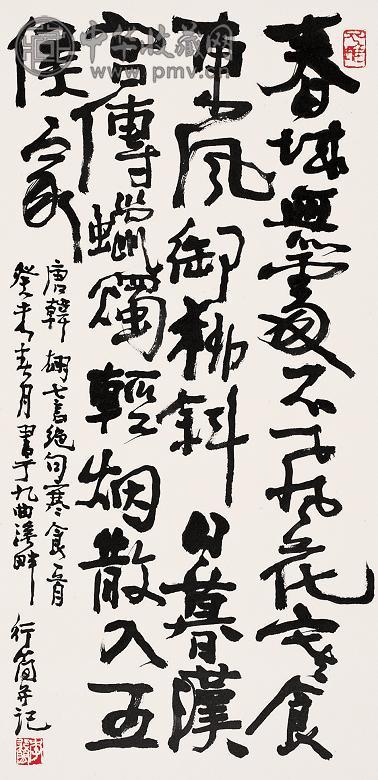 春城無處不飛花寒食
東風御柳斜日暮漢
宮傳蠟燭輕烟散入五
侯家
唐韓翃七言絕句寒食
癸未春月書于九曲溪畔
行簡并記
中华收藏网
www.pmv.cn